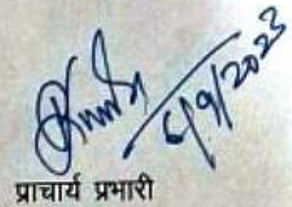 6/9/2023
प्राचार्य प्रभारी